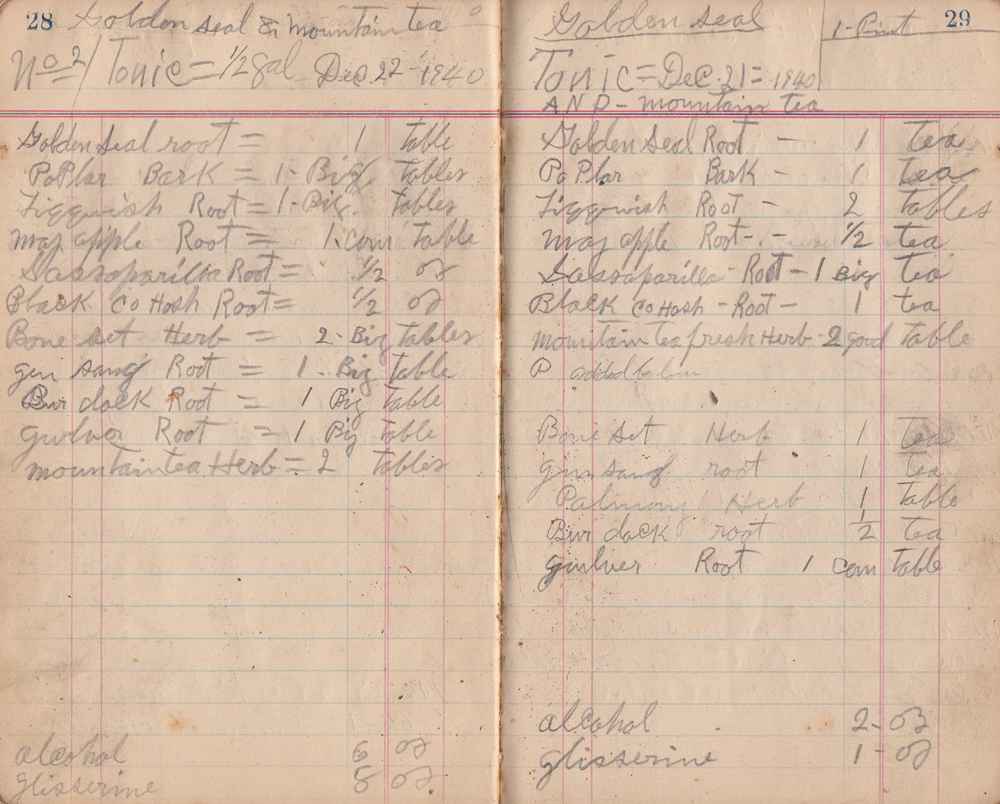 28 Golden seal & mountain tea
No 2 / Tonic = 1/2 gal Dec. 22 - 1940
Golden Seal root = 1 table
PoPlar Bark = 1 - Big Tables
Root = 1 - Big. Tables
may apple Root = 1. com Table
Sassaparilla Root = 1/2 oz
Black CoHosh Root = 1/2 oz
Bone set Herb = 2 - Big Tables
gin sang Root = 1 - Big Table
Bur dock Root = 1 Big Table
gulver Root = 1 Big Table
mountain tea Herb = 2 Tables
alcohol 6 oz
Glisserine 5 oz.
Golden seal 1 - Pint 29
Tonic = Dec. 21 = 1940
AND - mountain tea
Golden Seal Root - 1 tea
PoPlar Bark - 1 tea
Root - 2 Tables
may apple Root - . - 1/2 tea
Sassaparilla - Root - 1 Big Tea
Black CoHosh - Root - 1 tea
mountain tea fresh Herb - 2 good table
P added
Bone set Herb 1 tea
gin sang root 1 tea
Palmony Herb 1 table
Bur dock root 1/2 tea
gulver Root 1 com table
alcohol 2 - oz
glisserine 1 - oz